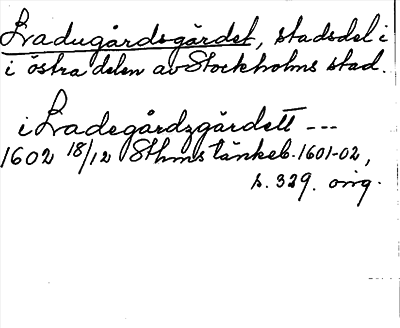 Ladugårdsgärdet, stadsdel i
i östra delen av Stockholms stad.
i Ladegårdzgärdett ---
1602 18/12 Sthms tänkeb. 1601-02,
s. 329. orig.